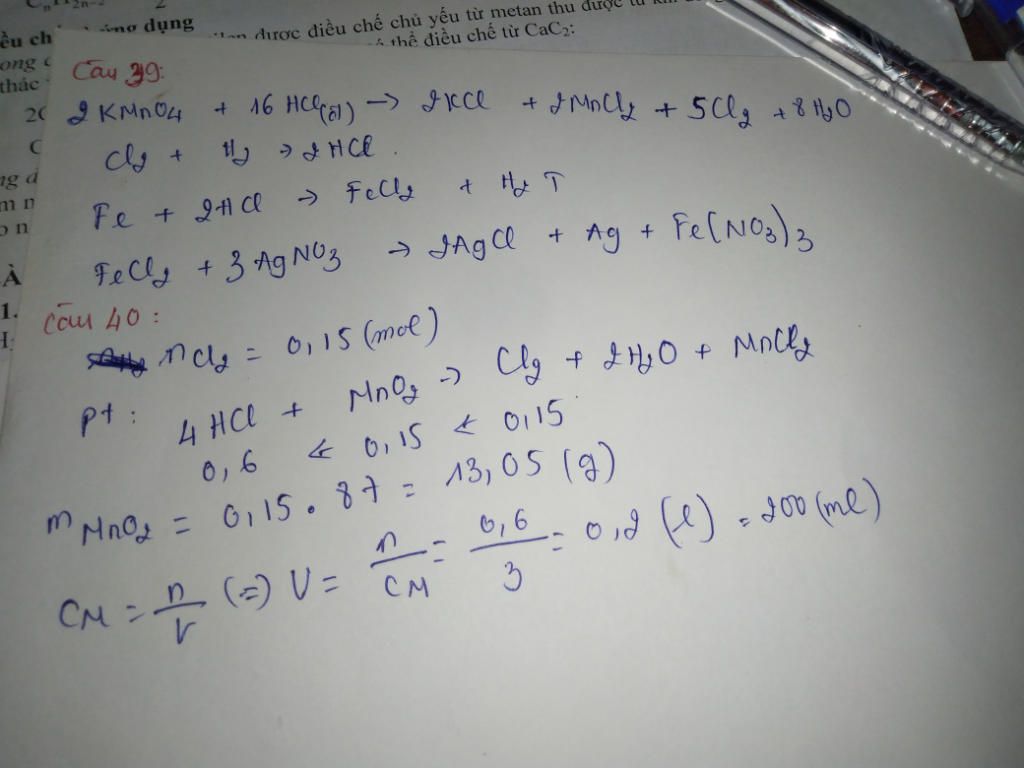 2n-2
2
ều ch
ứng dụng
được điều chế chủ yếu từ metan thu được từ
thể điều chế từ CaC₂:
ong
thác
Câu 39:
2 KMnO₄ + 16 HCl(đ) → 2KCl + 2MnCl₂ + 5Cl₂ + 8H₂O
Cl₂ + H₂ → 2HCl.
Fe + 2HCl → FeCl₂ + H₂ ↑
FeCl₂ + 3 AgNO₃ → 2AgCl + Ag + Fe(NO₃)₃
À
1.
Câu 40:
nCl₂ = 0,15 (mol)
pt: 4 HCl + MnO₂ → Cl₂ + 2H₂O + MnCl₂
0,6 ← 0,15 ← 0,15
mMnO₂ = 0,15 . 87 = 13,05 (g)
CM = n/V (=) V = n/CM = 0,6/3 = 0,2 (l) = 200 (ml)